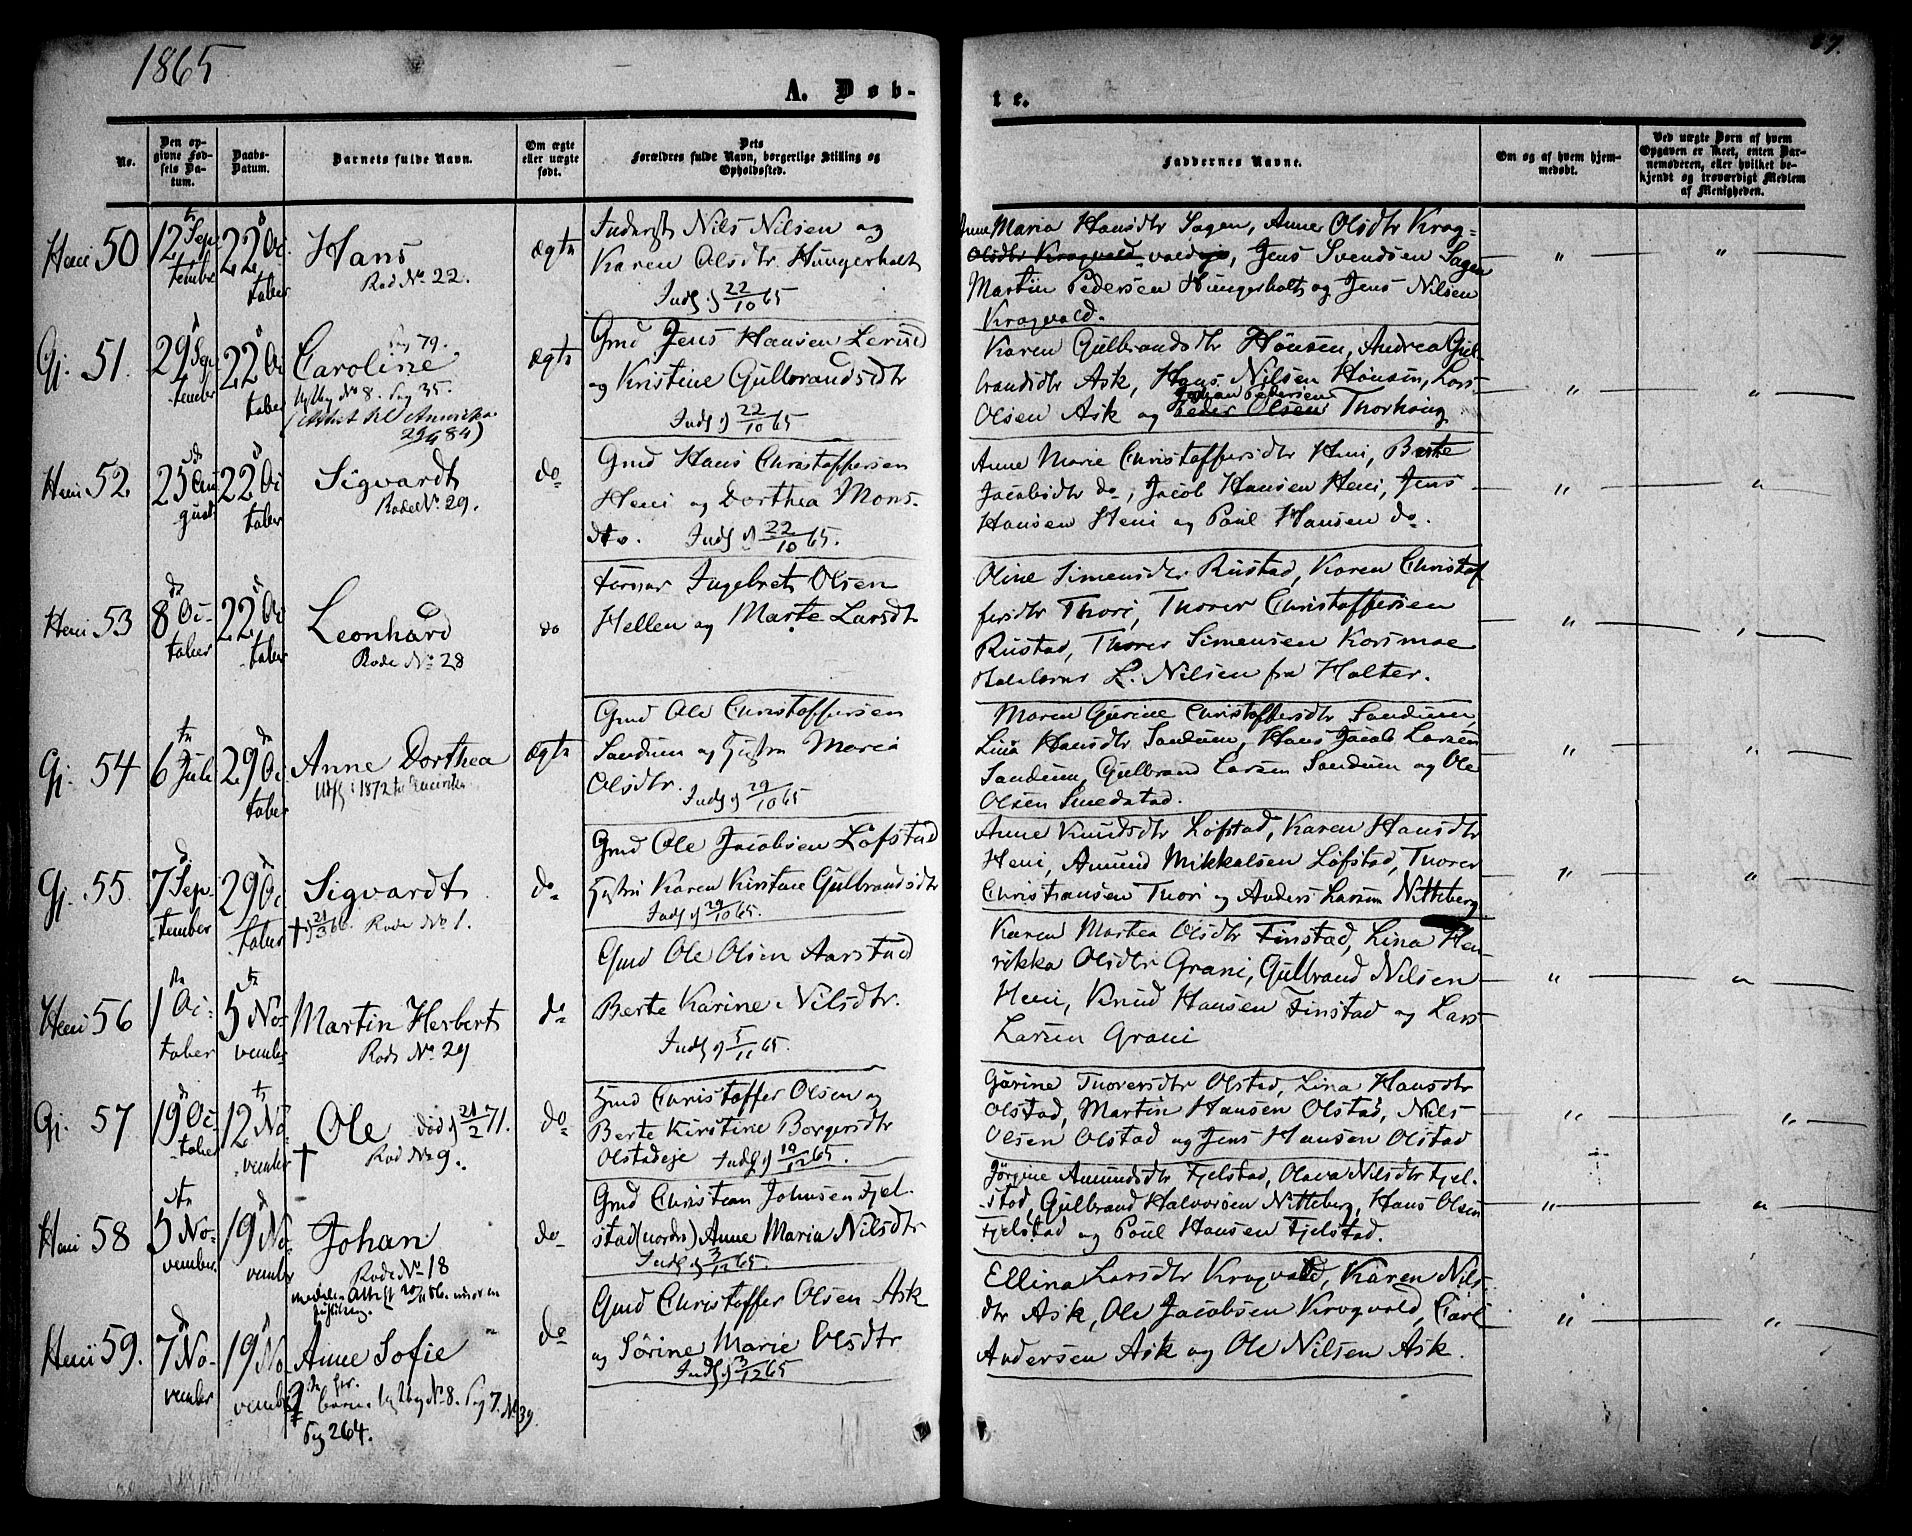 1865
A. Døb-
te.
No.
Den op-
givne Fød-
sels Da-
tum.
Daabs-
Datum.
Barnets fulde Navn.
Om ægte
eller uægte
født.
Dets
Forældres fulde Navn, borgerlige Stilling og
Opholdssted.
Faddernes Navne.
Om og af hvem hjem-
medøbt.
Ved uægte Børn af hvem
Opgaven er skeet, enten Bar-
nemoderen, eller hvilket be-
kjendt og troværdigt Medlem
af Menigheden.
Heni 50
12 Sep
tembr
22 Oc
tober
Hans
Rod No. 22.
ægte
Inderst Nils Nilsen og
Karen Olsdtr. Hungerholt
Indf. d 22/10 65
Anne Maria Hansdtr Sagen, Anne Olsdtr Krog-
Olsdtr Krogvold voldeje, Jens Svendsen Sagen
Martin Pedersen Hungerholt og Jens Nilsen
Krogvold.
Gj. 51.
29 Sep
tember
22 Oc
tober
Pag 79.
Caroline
No. 8. Pag 35.
(Attest til Amerika
29/4 84)
ægte
Gmd Jens Hansen
og Kristine Gulbrandsdtr
Indf. d 22/10 65
Karen Gulbrandsdtr Hønsen, Andrea Gul-
brandsdtr Ask, Hans Nilsen Hønsen, Lars
Johan Pedersen
Olsen Ask og Peder Olsen Thorhaug
Heni 52.
25 Au
gust
22 Oc
tober
Sigvardt
Rode No. 29.
do
Gmd Hans Christoffersen
Heni og Dorthea Mons-
dtr. Indf. d 22/10 65.
Anne Marie Christoffersdtr Heni, Berte
Jacobsdtr do, Jacob Hansen Heni, Jens
Hansen Heni og Poul Hansen do.
Heni 53
8 Oc-
tober
22 Oc
tober
Leonhard
Rode No. 28
do
Ingebret Olsen
Hellen og Marte Larsdtr
Oline Simensdtr Rustad, Karen Christof
fersdtr Thori, Thorer Christoffersen
Rustad, Thorer Simensen Korsmoe
L. Nilsen fra Holter.
Gj. 54
6 Juli
29 Oc
tober
Anne Dorthea
Udf. i 1872 t.
ægte
Gmd Ole Christoffersen
Sandum og Hustru Maria
Olsdtr. Indf. d 29/10 65
Maren Gurine Christoffersdtr Sandum,
Lina Hansdtr Sandum, Hans Jacob Larsen
Sandum, Gulbrand Larsen Sandum og Ole
Olsen Smedstad.
Gj. 55.
7 Sep
tember
29 Oc
tober
Sigvardt
† d 21/3 66. Rode No. 1.
do
Gmd Ole Jacobsen Løfstad
Hustru Karen Kirstine Gulbrandsdtr
Indf. d 29/10 65.
Anne Knudsdtr Løfstad, Karen Hansdtr
Heni, Amund Mikkelsen Løfstad, Thorer
Christiansen Thori og Anders Larsen Nitteberg
Heni 56
1 Oc-
tober
5 No-
vember
Martin Herbert
Rode No. 29
do
Gmd Ole Olsen Aarstad
Berte Karine Nilsdtr.
Indf. d 5/11 65.
Karen Martea Olsdtr Finstad, Lina Hen
rikka Olsdtr Grani, Gulbrand Nilsen
Heni, Knud Hansen Finstad og Lars
Larsen Grani
Gj. 57
19 Oc-
tober
12 No-
vember
Ole død d 21/2 71.
† Rod No. 9.
do
Hmd Christoffer Olsen og
Berte Kirstine Borgersdtr
Olstadeje Indf. d 19/12 65.
Gurine Thorersdtr Olstad, Lina Hansdtr
Olstad, Martin Hansen Olstad, Nils
Olsen Olstad og Jens Hansen Olstad
Heni 58
5 No-
vember
19 No-
vember
Johan
Rode No. 18
do
Gmd Christian Johnsen Fjel-
stad (nordre) Anne Maria Nilsdtr
Indf. d 3/12 65.
Jørgine Amundsdtr Fjelstad, Olava Nilsdtr Fjel-
stad, Gulbrand Halvorsen Nitteberg, Hans Olsen
Fjelstad og Poul Hansen Fjelstad.
Heni 59.
7 No-
vember
19 No
vember
Anne Sofie
No. 8. Pag 7. No 39.
Pag 264.
do
Gmd Christoffer Olsen Ask
og Sørine Marie Olsdtr
Indf. d 3/12 65
Ellina Larsdtr Krogvold, Karen Nils-
dtr Ask, Ole Jacobsen Krogvold, Carl
Andersen Ask og Ole Nilsen Ask.